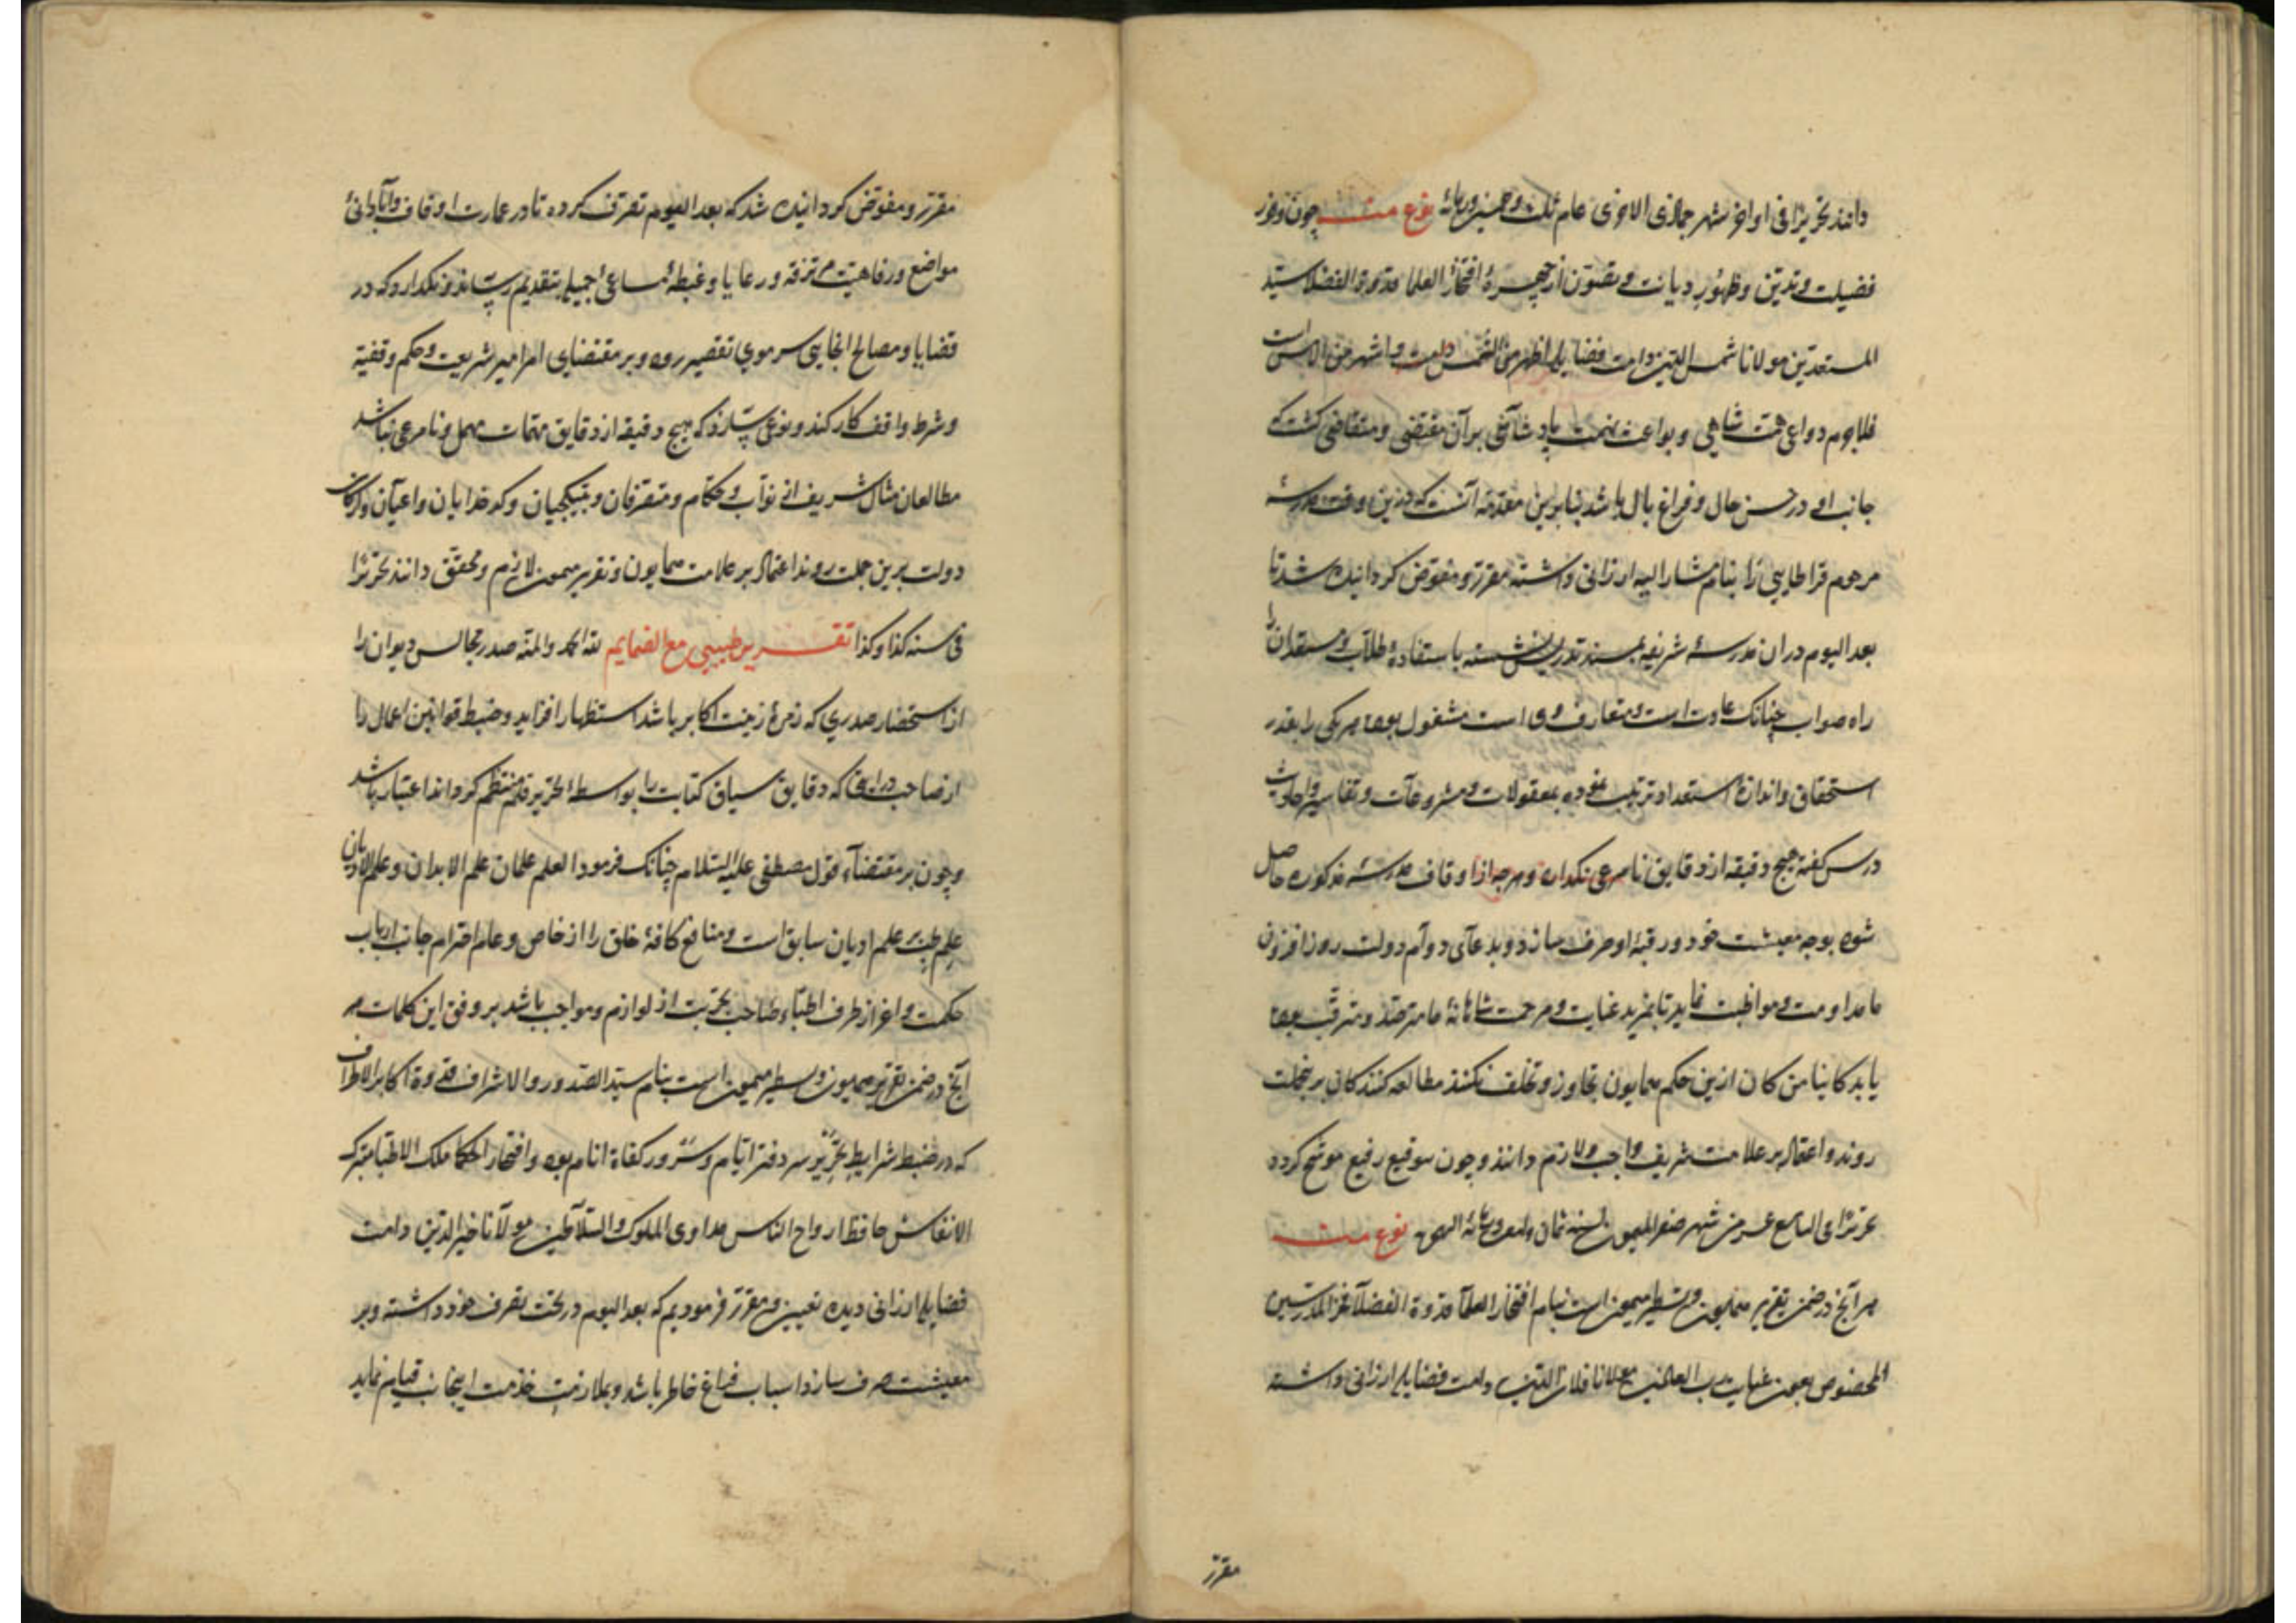 دانند تحریرا فی اواخر شهر جمادی الاخری عام ثلث وخمسین وثمانمائه نوع منه چون وفور
فضیلت و تدین و ظهور دیانت و تصون از چهرهٔ افتخار العلما قدوة الفضلا سید
المستعدین مولانا شمس الدین دامت فضایله اظهر من الشمس است و اشهر من الامس است
فلاجرم دواعی همت شاهی و بواعث نهمت پادشاهی بر آن مقتضی و متقاضی کشت که
جانب او در حسن حال و فراغ بال باشد بنابرین مقدمه آنست که درین وقت مدرسهٔ
مرحوم قراطایی را بنام مشار الیه ارزانی داشته مقرر و مفوض کردانیده شد تا
بعد الیوم در ان مدرسهٔ شریفه بمسند تدریس نشسته باستفادهٔ طلاب و مستعدان را
راه صواب چنانک عادت است و متعارف وی است مشغول بوده هر یکی را بقدر
استحقاق و اندازهٔ استعداد ترتیب نموده بمعقولات و مشروعات و تفاسیر و احادیث
درس کفته هیچ دقیقه از دقایق نامرعی نکذارد و هرچه از اوقاف مدرسهٔ مذکوره حاصل
شود بوجه معیشت خود و رقبهٔ او صرف سازد و بدعای دوام دولت روز افزون
ما مداومت و مواظبت نماید تا بمزید عنایت و مرحمت شاهانهٔ ما مترصد و مترقب بوده
یابد کاینا من کان ازین حکم همایون تجاوز و تخلف نکنند مطالعه کنندکان برینجملت
روند و اعتماد بر علامت شریف واجب و لازم دانند و چون بتوقیع رفیع موشح کردد
تحریرا فی السابع عشر من شهر صفر المیمون لسنه ثمان وثمانمائه الهجریه نوع منه
هر آنچ در ضمن تقریر همایون و تسطیر میمون است بنام افتخار العلما قدوة الفضلا عز المدرسین
المخصوص بعون عنایت رب العالمین مولانا فلان الدین دامت فضایله ارزانی داشته
مقرر
مقرر و مفوض کردانیده شد که بعد الیوم تصرف کرده تا در عمارت اوقاف و آبادانئ
مواضع و رفاهیت مزرعه و رعایا و غبطه مساعئ جمیله بتقدیم رساند و نکذارد که در
قضایا و مصالح انجایی سر مویی تقصیر رود و بر مقتضای امر امیر شریعت و حکم وقفیة
و شرط واقف کار کند و نوعی سازد که هیچ دقیقه از دقایق مهمات مهمل و نامرعی نباشد
مطالعان مثال شریف از نواب و حکام و متصرفان و بتیکجیان و کدخدایان و اعیان و ارکان
دولت برین جملت روند اعتماد بر علامت همایون و تقریر میمون لازم و محقق دانند تحریرا
فی سنه کذا و کذا تقریر طبیبی مع الضمایم لله الحمد والمنه صدر مجالس دیوان را
از استحضار صدری که زمرهٔ زینت اکابر باشد استظهار افزاید و ضبط قوانین اعمال را
از صاحب درایی که دقایق سیاق کتابت را بواسطهٔ تحریر قلم منتظم کرداند اعتبار باشد
و چون بر مقتضاء قول مصطفی علیه السلام چنانک فرمود العلم علمان علم الابدان و علم الادیان
علم طب بر علم ادیان سابق است و منافع کافهٔ خلق را از خاص و عام احترام جانب ارباب
حکمت و اعزاز طرف اطباء صاحب تجربت از لوازم و مواجب باشد بر وفق این کلمات هر
آنچ در ضمن تقریر همیون و تسطیر میمون است بنام سید الصدور والاشراف قدوة اکابر الاطراف
که در ضبط شرایط تحریر سر دفتر ایام و سرور کفاة انام بوده و افتخار الحکما ملک الاطبا متبرک
الانفاس حافظ ارواح الناس مداوی الملوک والسلاطین مولانا خیر الدین دامت
فضایله ارزانی دیده تعیین و مقرر فرمودیم که بعد الیوم در تحت تصرف خود داشته و بر
معیشت صرف سازد اسباب فراغ خاطر باشد و بملازمت خدمت اینجانب قیام نماید